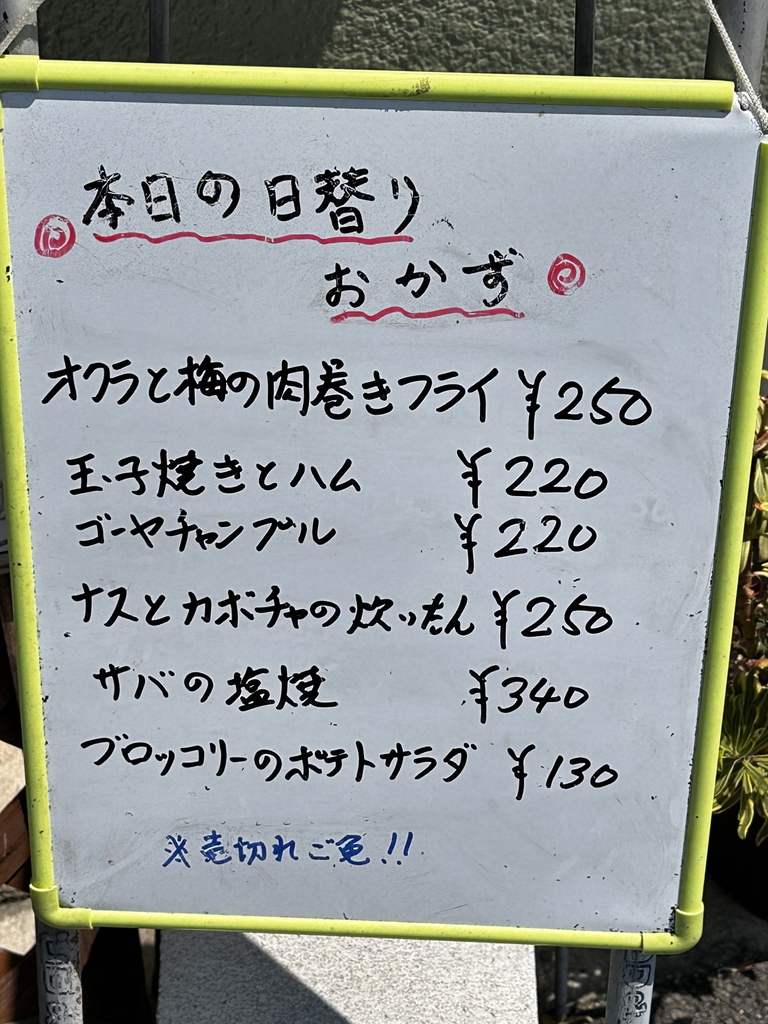 本日の日替り
おかず
オクラと梅の肉巻きフライ ¥250
玉子焼きとハム ¥220
ゴーヤチャンプル ¥220
ナスとカボチャの炊いたん ¥250
サバの塩焼 ¥340
ブロッコリーのポテトサラダ ¥130
※売切れご免!!